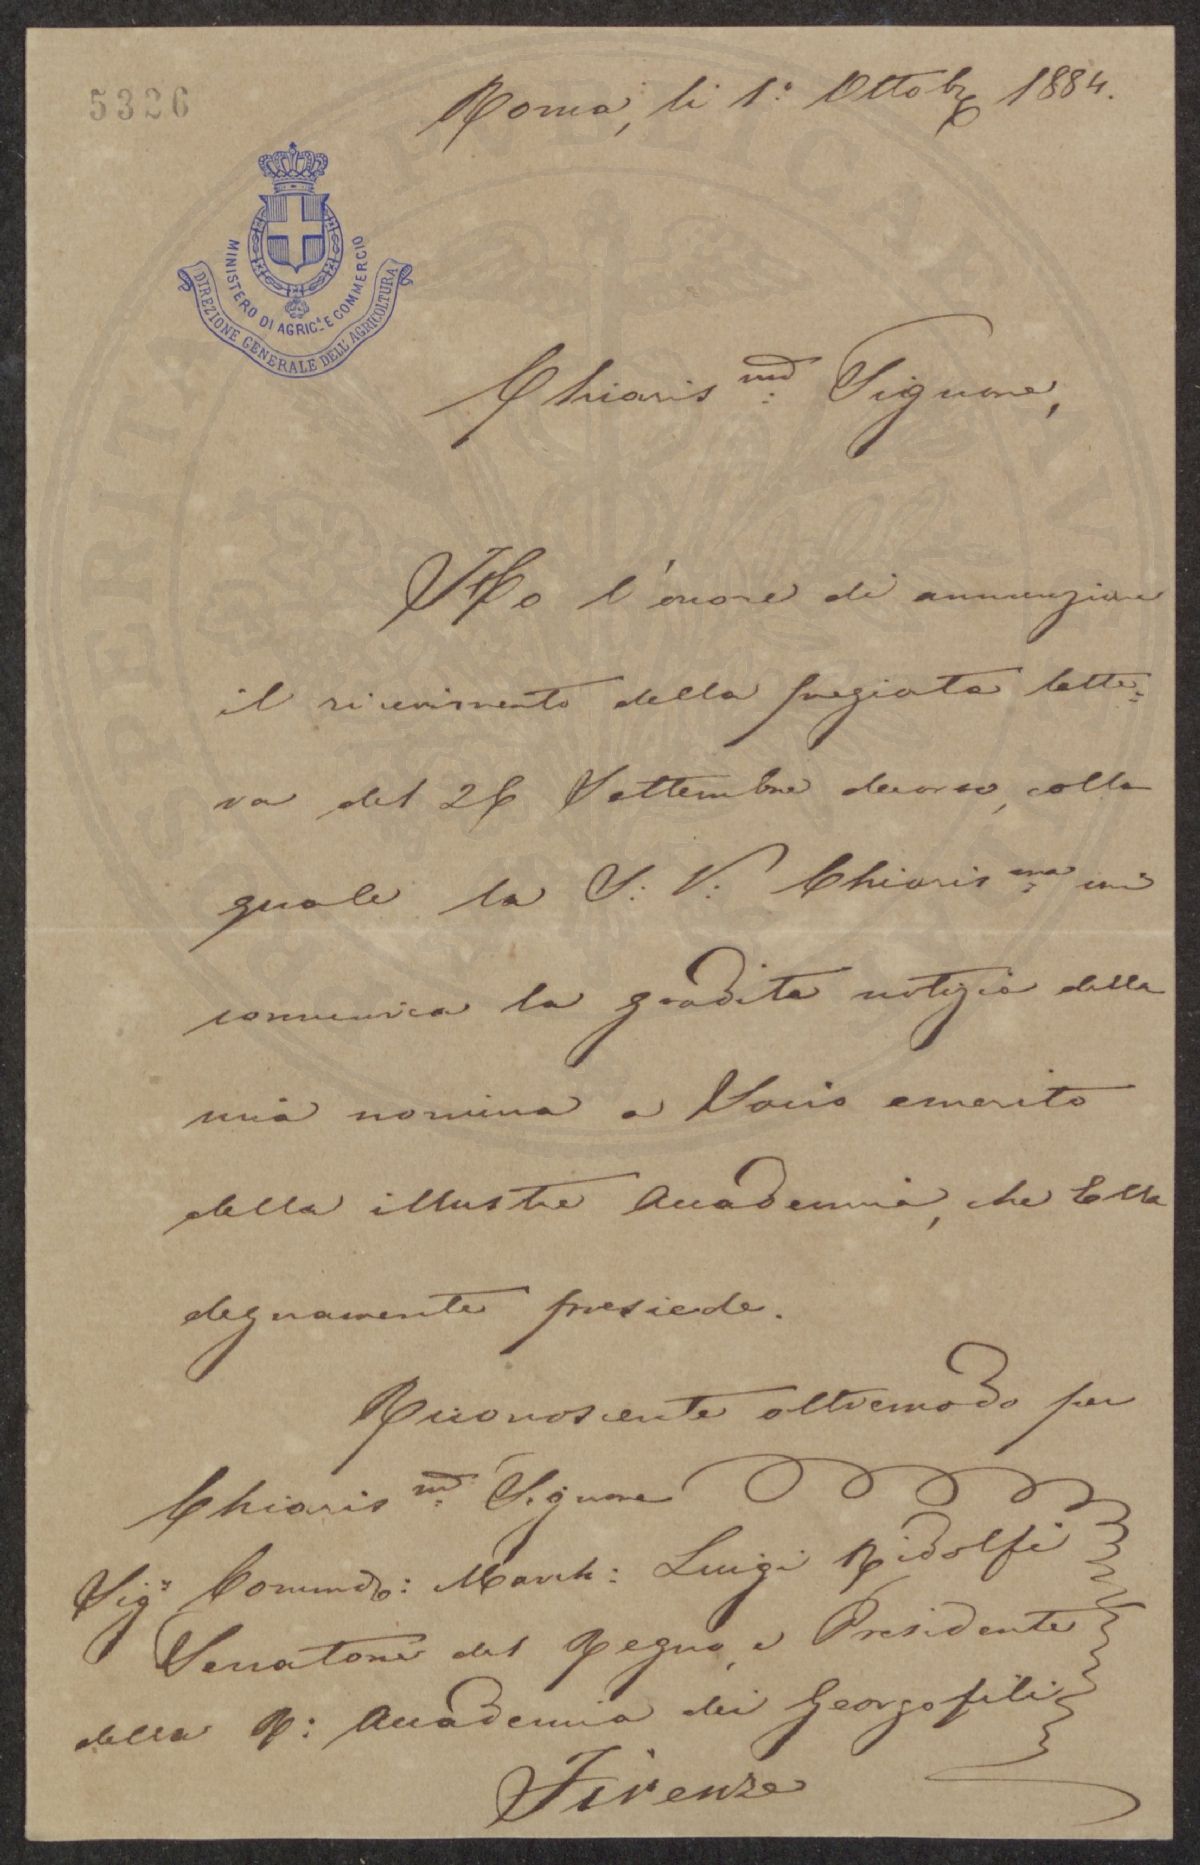 5326
Roma, li 1º Ottobre 1884.
MINISTERO DI AGRIC.A E COMMERCIO
DIREZIONE GENERALE DELL'AGRICOLTURA
Chiaris.mo Signore,
Ho l'onore di annunziare
il ricevimento della pregiata lette=
ra del 26 Settembre decorso, colla
quale la S: V: Chiaris.ma mi
comunica la gradita notizia della
mia nomina a Socio emerito
della illustre Accademia, che Ella
degnamente presiede.
Riconoscente oltremodo per
Chiaris.mo Signore
Sig.r Commd.: March: Luigi Ridolfi
Senatore del Regno, e Presidente
della R: Accademia dei Georgofili
Firenze